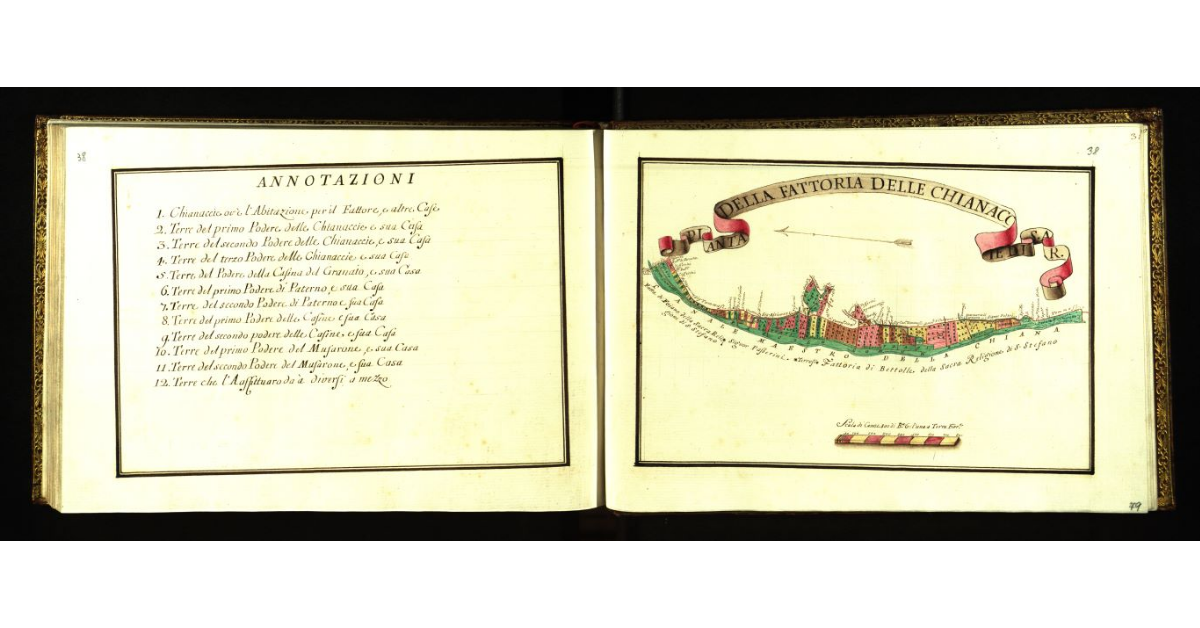 38
ANNOTAZIONI
1. Chianaccie ov'è l'Abitazione per il Fattore, e altre Case
2. Terre del primo Podere delle Chianaccie, e sua Casa
3. Terre del secondo Podere delle Chianaccie, e sua Casa
4. Terre del terzo Podere delle Chianaccie, e sua Casa
5. Terre del Podere della Casina del Granato, e sua Casa
6. Terre del primo Podere di Paterno, e sua Casa
7. Terre del secondo Podere di Paterno e sua Casa
8. Terre del primo Podere delle Casine, e sua Casa
9. Terre del secondo podere delle Casine, e sua Casa
10. Terre del primo Podere del Musarone, e sua Casa
11. Terre del secondo Podere del Musarone, e sua Casa
12. Terre che l'Affittuaro dà a diversi a mezzo
38
PIANTA
DELLA FATTORIA DELLE CHIANACC
IE DI S.A.R.
CANALE MAESTRO DELLA CHIANA
della Sacra Relig. Signor Passerini
Fattoria di Bettolle della Sacra Religione di S. Stefano
gione di S. Stefano
Scala di
79